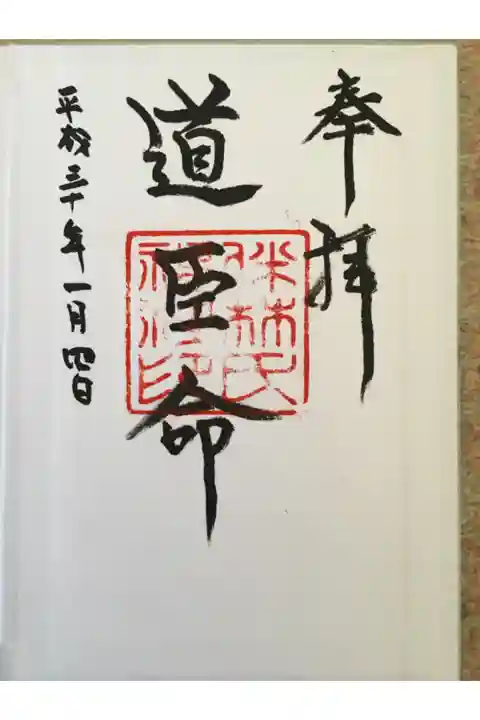 奉拝
道臣命
平成三十年一月四日
伴林氏
神社印